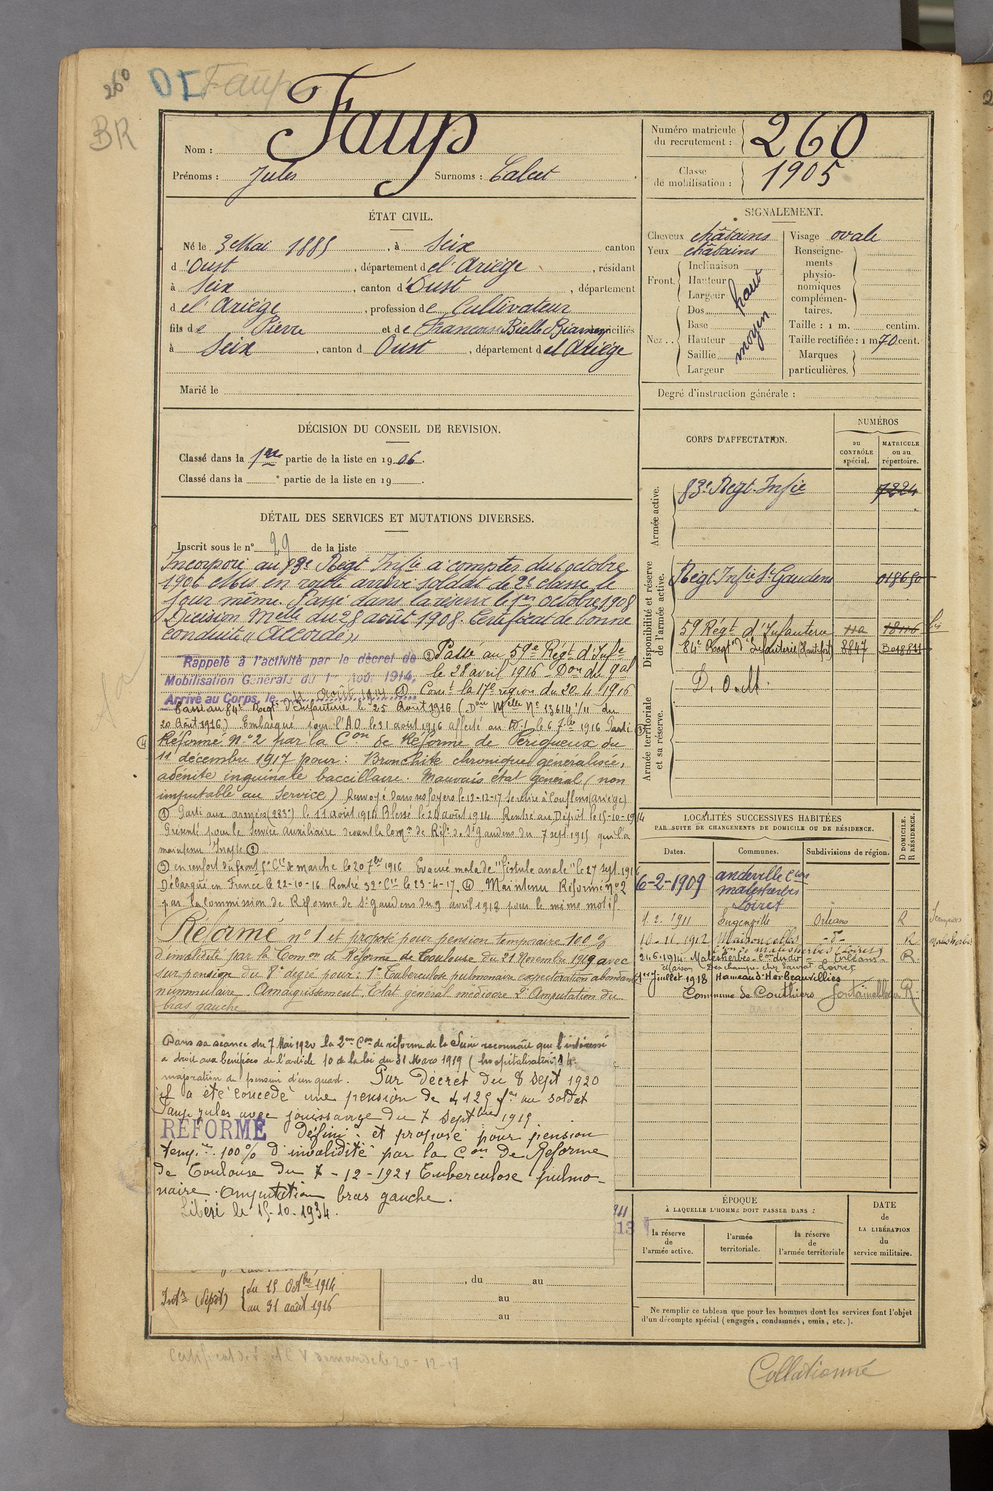 260 DI Faup
BR
Nom : Faup
Prénoms : Jules Surnoms : Calat
Numéro matricule du recrutement : 260
Classe de mobilisation : 1905
ÉTAT CIVIL.
Né le 3 Mai 1885, à Seix canton
d'Oust, département de l'Ariège, résidant
à Seix, canton d'Oust, département
de l'Ariège, profession de Cultivateur
fils de Pierre et de Francoise Bielle Biarrey domiciliés
à Seix, canton d Oust, département de l'Ariège
Marié le
SIGNALEMENT.
Cheveux châtains
Yeux châtains
Front. Inclinaison
Hauteur
Largeur
haut
Nez.. Dos
Base
Hauteur
Saillie
Largeur
moyen
Visage ovale
Renseignements physionomiques complémentaires.
Taille : 1 m. centim.
Taille rectifiée : 1 m 70 cent.
Marques particulières.
Degré d'instruction générale :
DÉCISION DU CONSEIL DE REVISION.
Classé dans la 1re partie de la liste en 1906.
Classé dans la e partie de la liste en 19
DÉTAIL DES SERVICES ET MUTATIONS DIVERSES.
Inscrit sous le n° 29 de la liste
Incorporé au 83e Régt Infie à compter du 6 octobre
1906 et mis en route arrivé soldat de 2e classe le
jour même. Passé dans la réserve le 1er octobre 1908
Décision Melle du 28 août 1908. Certificat de bonne
conduite "Accordé"
Rappelé à l'activité par le décret de
Mobilisation Générale du 1er Août 1914,
Arrivé au Corps, le 4 Août 1914 ①
② Passé au 59e Régt d'Infie
le 28 avril 1916 Don du Gal
Comt la 17e région du 20-4-1916
Passé au 84e Régt d'Infanterie le 25 Août 1916 (Don Mlle N° 13614 1/11 du
20 Août 1916) Embarqué pour l'A.O. le 31 août 1916 affecté au le 6 7bre 1916 Parti ③
④ Réformé N°2 par la Con de Réforme de Périgueux du
11 décembre 1917 pour : Bronchite chronique généralisée,
adénite inguinale baccillaire. Mauvais état général (non
imputable au Service) Renvoyé dans ses foyers le 12-12-17 Se retire à Couflens (ariège)
① Parti aux armées (283e) le 11 août 1914 Blessé le 29 août 1914 Rentré au Dépôt le 15-10-1914
Présenté pour le service auxiliaire devant la Comon de Réf. de St Gaudens du 7 sept 1915 qui l'a
maintenu Insfe ②
③ en renfort du front 5e Cie de marche le 20 7bre 1916 Evacué malade "Fistule anale" le 27 sept. 1916
Débarqué en France le 22-10-16 Rentré 32e Cie le 23-4-17. ④ Maintenu Réformé n°2
par la Commission de Réforme de St Gaudens du 9 avril 1918 pour le même motif
Réformé n° 1 et proposé pour pension temporaire 100 %
d'invalidité par la Con de Réforme de Toulouse du 21 Novembre 1919 avec
sur pension du 8e degré pour : 1° Tuberculose pulmonaire expectoration abondante
nummulaire. Amaigrissement. Etat général médiocre 2° Amputation du
bras gauche
Dans sa séance du 7 Mai 1920 la 2me Con de réforme de la Seine reconnaît que l'intéressé
a droit aux bénéfices de l'article 10 de la loi du 31 Mars 1919 (hospitalisation
majoration de pension d'un quart. Par Décret du 8 Sept 1920
il a été concédé une pension de 4125 frs au soldat
Faup Jules avec jouissance du 7 Septbre 1919
RÉFORMÉ Défini. et proposé pour pension
temp.re 100 % d'invalidité par la Con de Réforme
de Toulouse du 7-12-1921 Tuberculose pulmo-
naire - Amputation bras gauche.
Libéré le 15-10-1934.
Intr (dépôt) du 15 Octbre 1914
au 31 août 1916
, du au
au
au
CORPS D'AFFECTATION.
NUMÉROS
au CONTRÔLE spécial.
MATRICULE ou au répertoire.
Armée active.
83e Régt Infie 7224
Disponibilité et réserve de l'armée active.
Régt Infie St Gaudens 018650
59 Régt d'Infanterie 11a 18116
84e Régt d'Infanterie 8847
Armée territoriale et sa réserve.
D. O. M.
LOCALITÉS SUCCESSIVES HABITÉES
PAR SUITE DE CHANGEMENTS DE DOMICILE OU DE RÉSIDENCE.
Dates. Communes. Subdivisions de région. D DOMICILE. R RÉSIDENCE.
6-2-1909 andeville Con
malesherbes
Loiret
1.2.1911 Eugenville Orléans R
10-11-1912 Maisoncelles - d° - R
Con de malesherbes (Loiret)
21.6.1914 Malesherbes Orléans R
1er Juillet 1918 Hameau d'Herbeauvilliers
Commune de Fontainebleau R
ÉPOQUE
À LAQUELLE L'HOMME DOIT PASSER DANS :
la réserve de l'armée active.
l'armée territoriale.
la réserve de l'armée territoriale
DATE de LA LIBÉRATION du service militaire.
Ne remplir ce tableau que pour les hommes dont les services font l'objet
d'un décompte spécial (engagés, condamnés, omis, etc.).
demandé le 20-12-17
Collationné